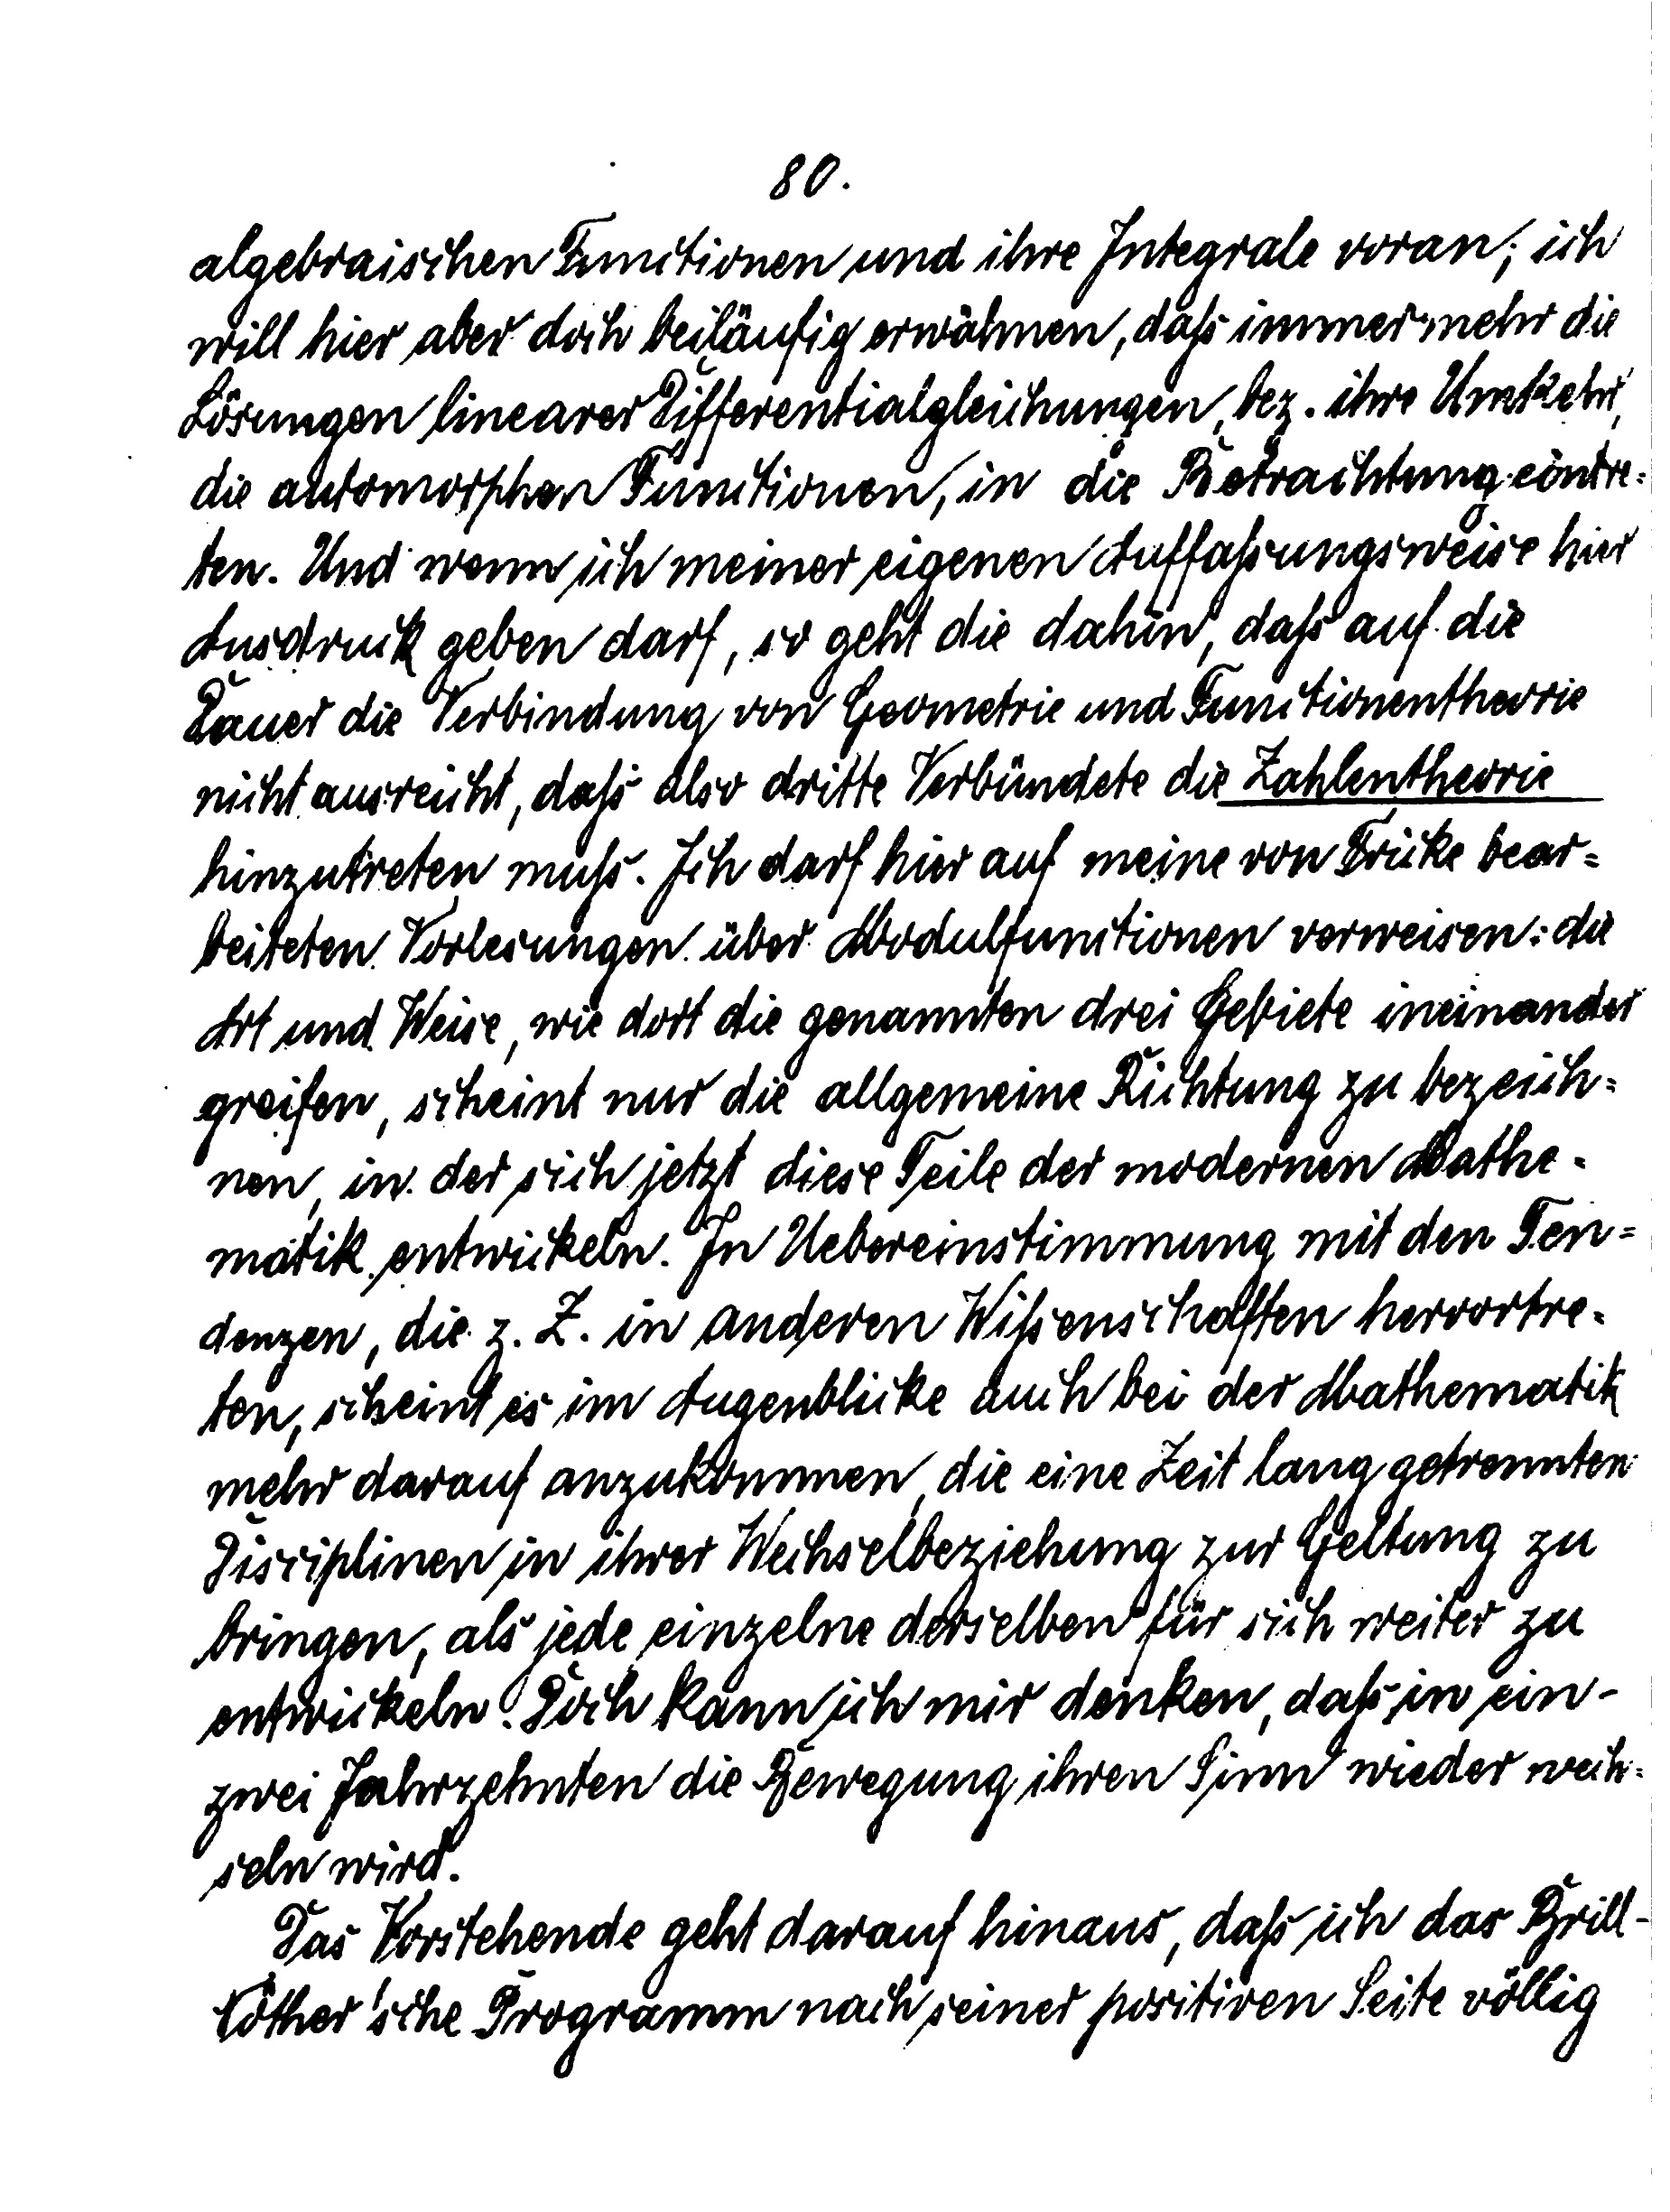 80.
algebraischen Functionen und ihre Integrale voran; ich
will hier aber doch beiläufig erwähnen, daß immer mehr die
Lösungen linearer Differentialgleichungen, bez. ihre Umkehr,
die automorphen Functionen, in die Betrachtung eintre=
ten. Und wenn ich meiner eigenen Auffaßungsweise hier
Ausdruck geben darf, so geht die dahin, daß auf die
Dauer die Verbindung von Geometrie und Functionentheorie
nicht ausreicht, daß also dritte Verbündete die Zahlentheorie
hinzutreten muß. Ich darf hier auf meine von Fricke bear=
beiteten Vorlesungen über Modulfunctionen verweisen: die
Art und Weise, wie dort die genannten drei Gebiete ineinander
greifen, scheint nur die allgemeine Richtung zu bezeich=
nen, in der sich jetzt diese Teile der modernen Mathe=
matik entwickeln. In Uebereinstimmung mit den Ten=
denzen, die z. Z. in anderen Wißenschaften hervortre=
ten, scheint es im Augenblicke auch bei der Mathematik
mehr darauf anzukommen, die eine Zeit lang getrennten
Disciplinen in ihrer Wechselbeziehung zur Geltung zu
bringen, als jede einzelne derselben für sich weiter zu
entwickeln. Doch kann ich mir denken, daß in ein-
zwei Jahrzehnten die Bewegung ihren Sinn wieder wech=
seln wird.
Das Vorstehende geht darauf hinaus, daß ich das Brill-
Nöther'sche Programm nach seiner positiven Seite völlig